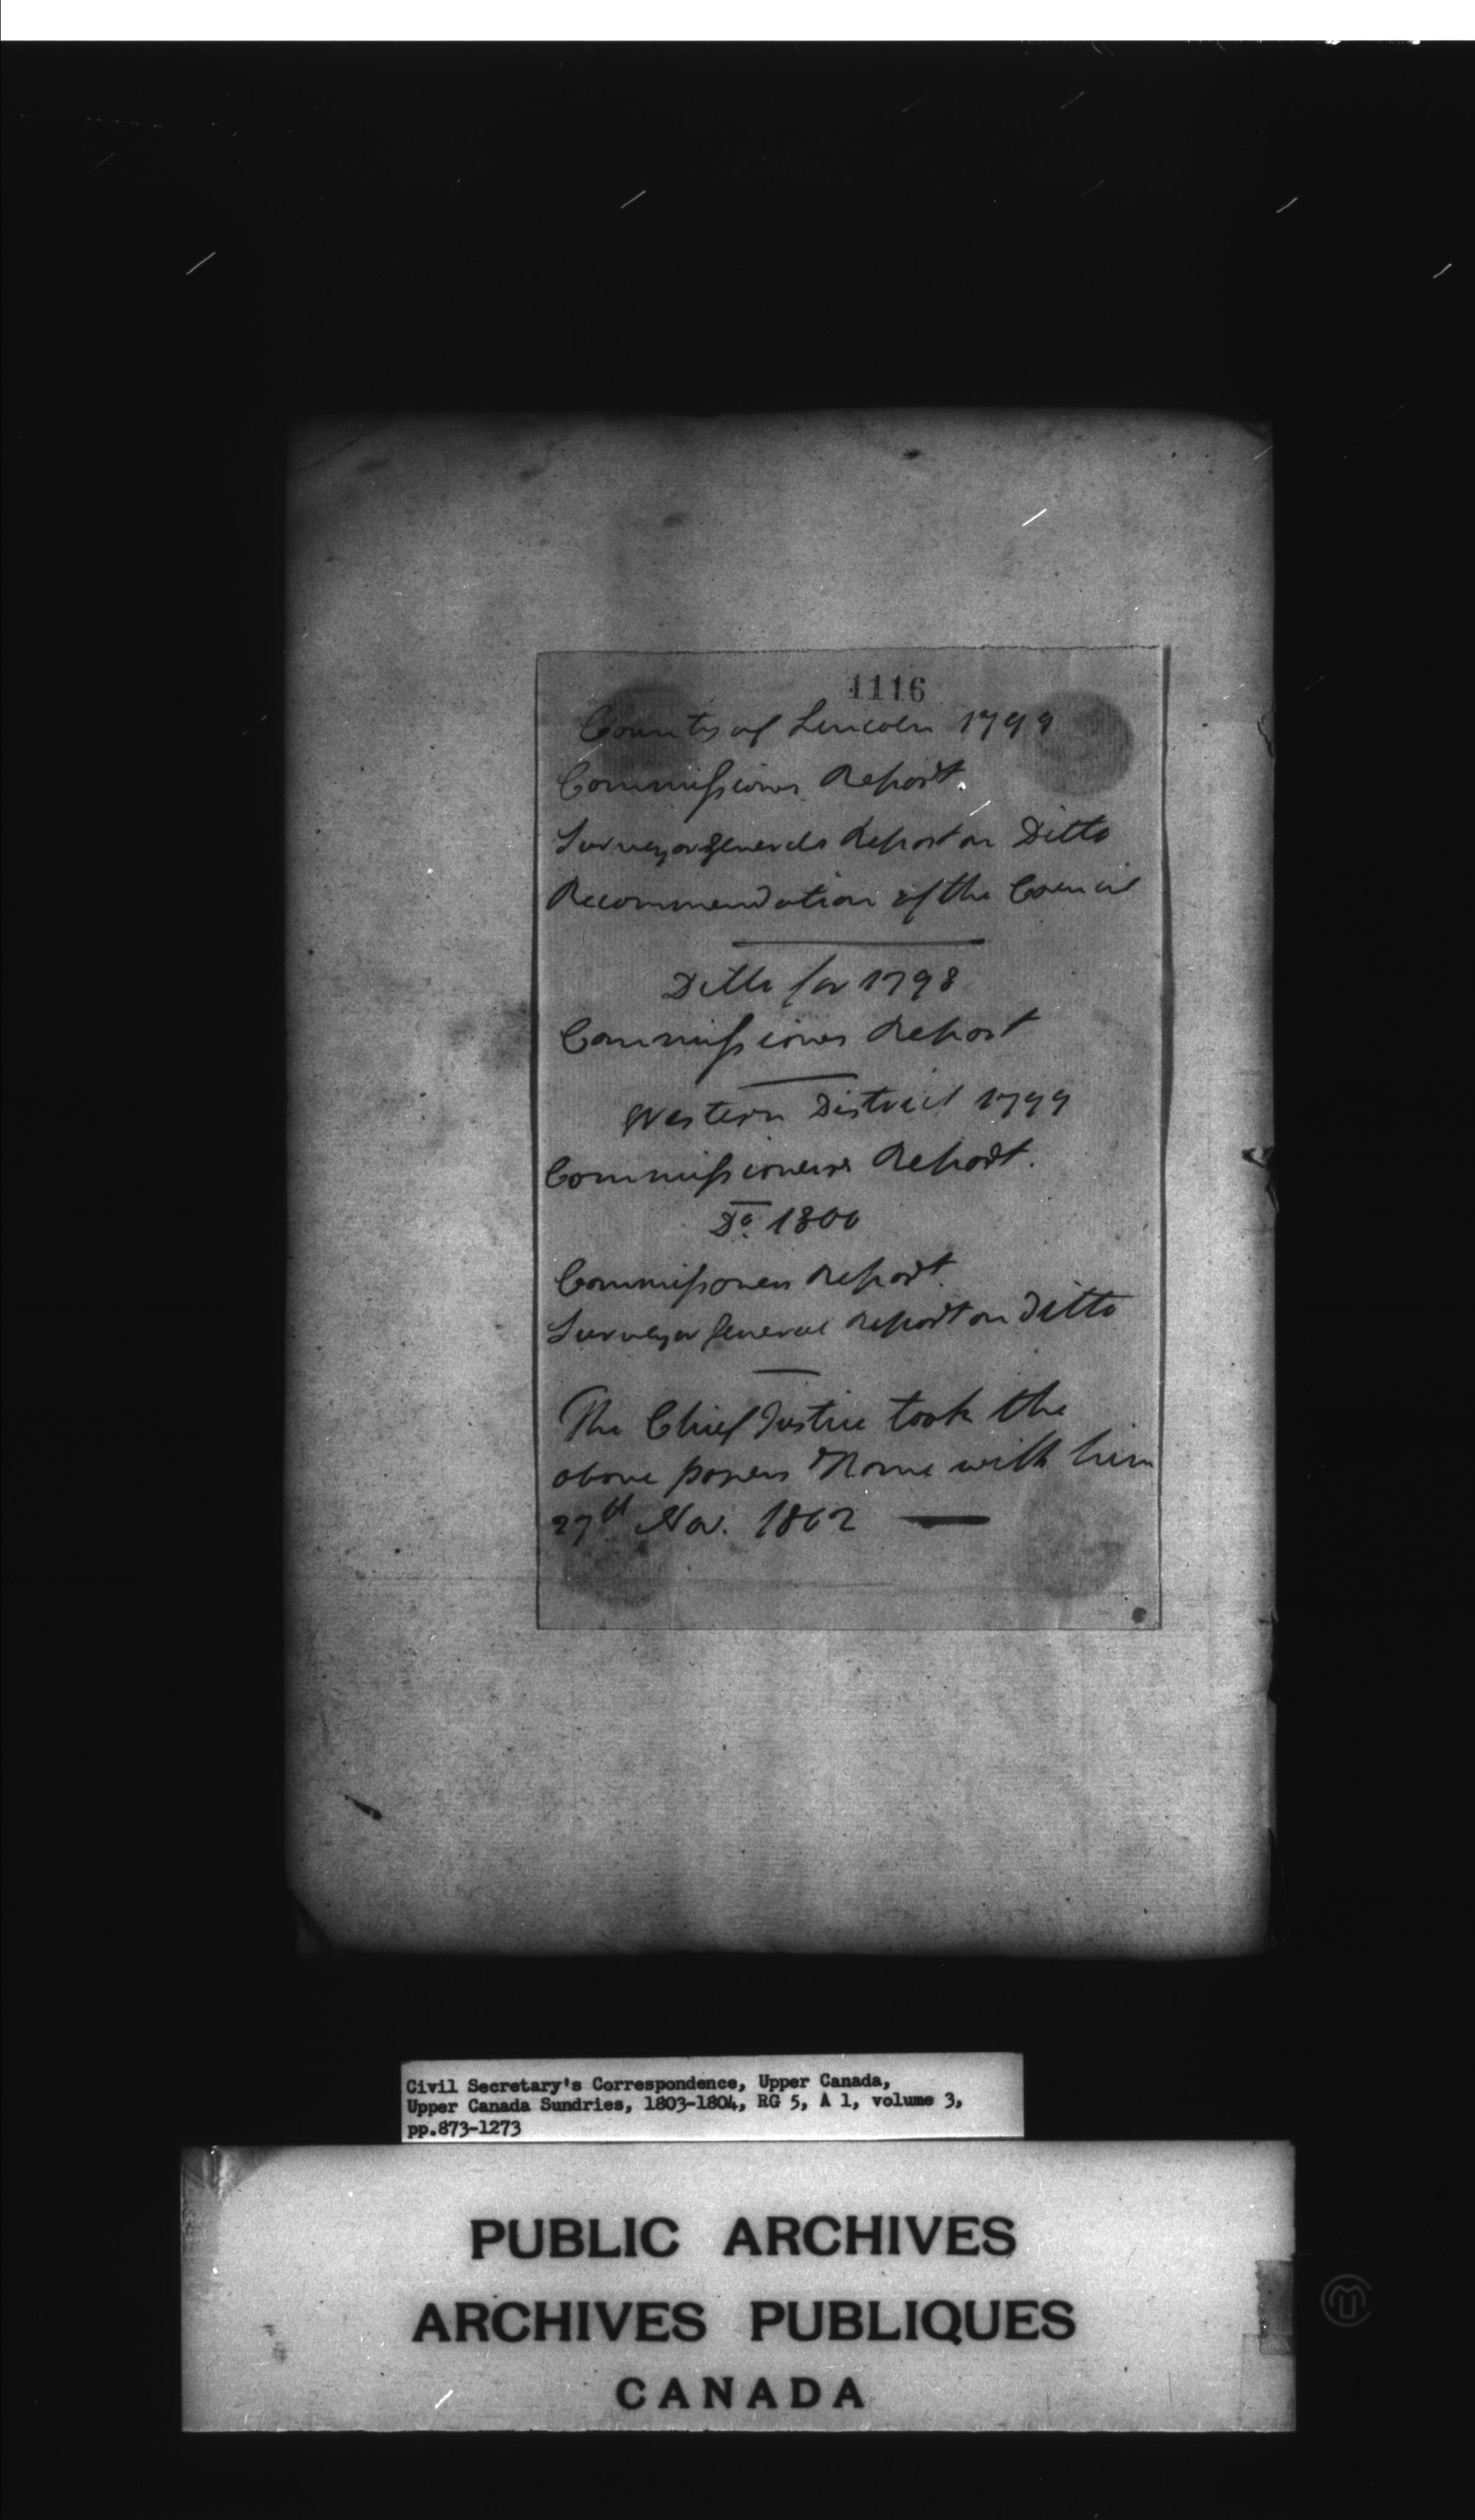 1116
County of Lincoln 1799
Commissioners Report.
Surveyor Generals Report on Ditto
Recommendation of the Council
Ditto for 1798
Commissioners Report
Western District 1799
Commissioners Report.
Do. 1800
Commissioners Report.
Surveyor General Report on Ditto
The Chief Justice took the
above papers Home with him
27th Nov. 1802
Civil Secretary's Correspondence, Upper Canada,
Upper Canada Sundries, 1803-1804, RG 5, A 1, volume 3,
pp.873-1273
PUBLIC ARCHIVES
ARCHIVES PUBLIQUES
CANADA